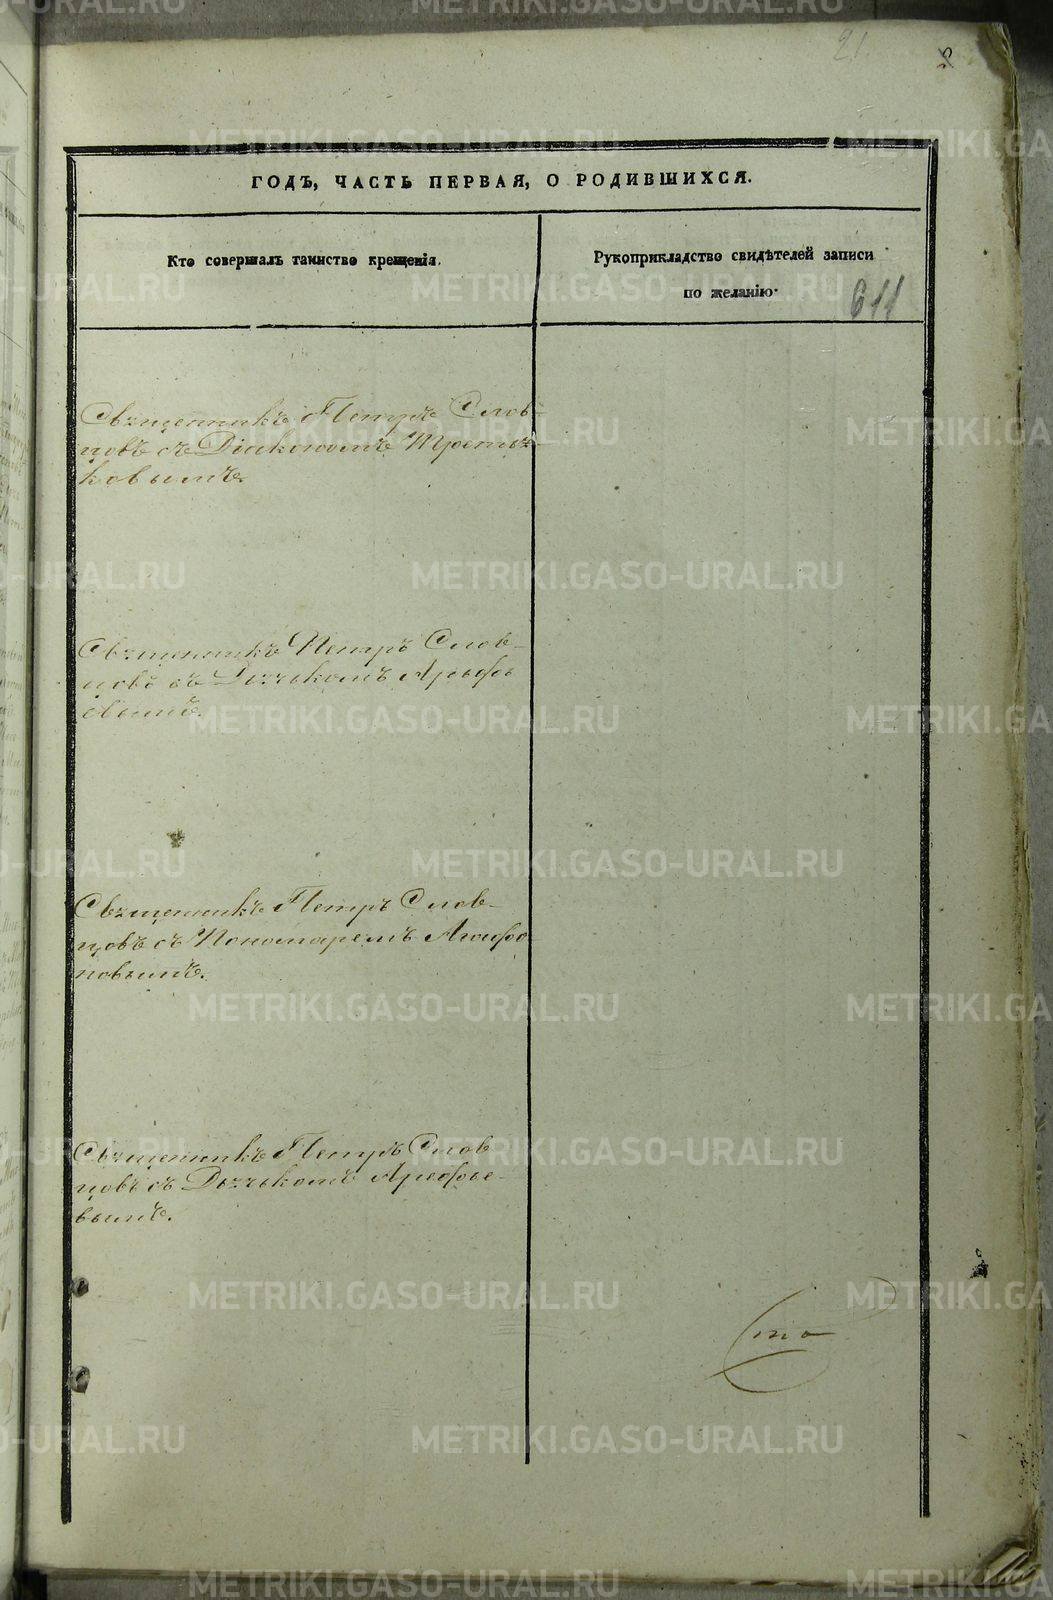 21
8
ГОДЪ, ЧАСТЬ ПЕРВАЯ, О РОДИВШИХСЯ.
Кто совершалъ таинство крещенія.
Рукоприкладство свидѣтелей записи
по желанію.
611
Священникъ Петръ Слов-
цовъ съ Діакономъ Третья-
ковымъ.
Священникъ Петръ Слов-
цовъ съ Дьячькомъ Арефь
евымъ.
Священникъ Петръ Слов-
цовъ съ Пономаремъ Агафо-
новымъ.
Священникъ Петръ Слов
цовъ съ Дьячькомъ Арефье-
вымъ.
METRIKI.GASO-URAL.RU